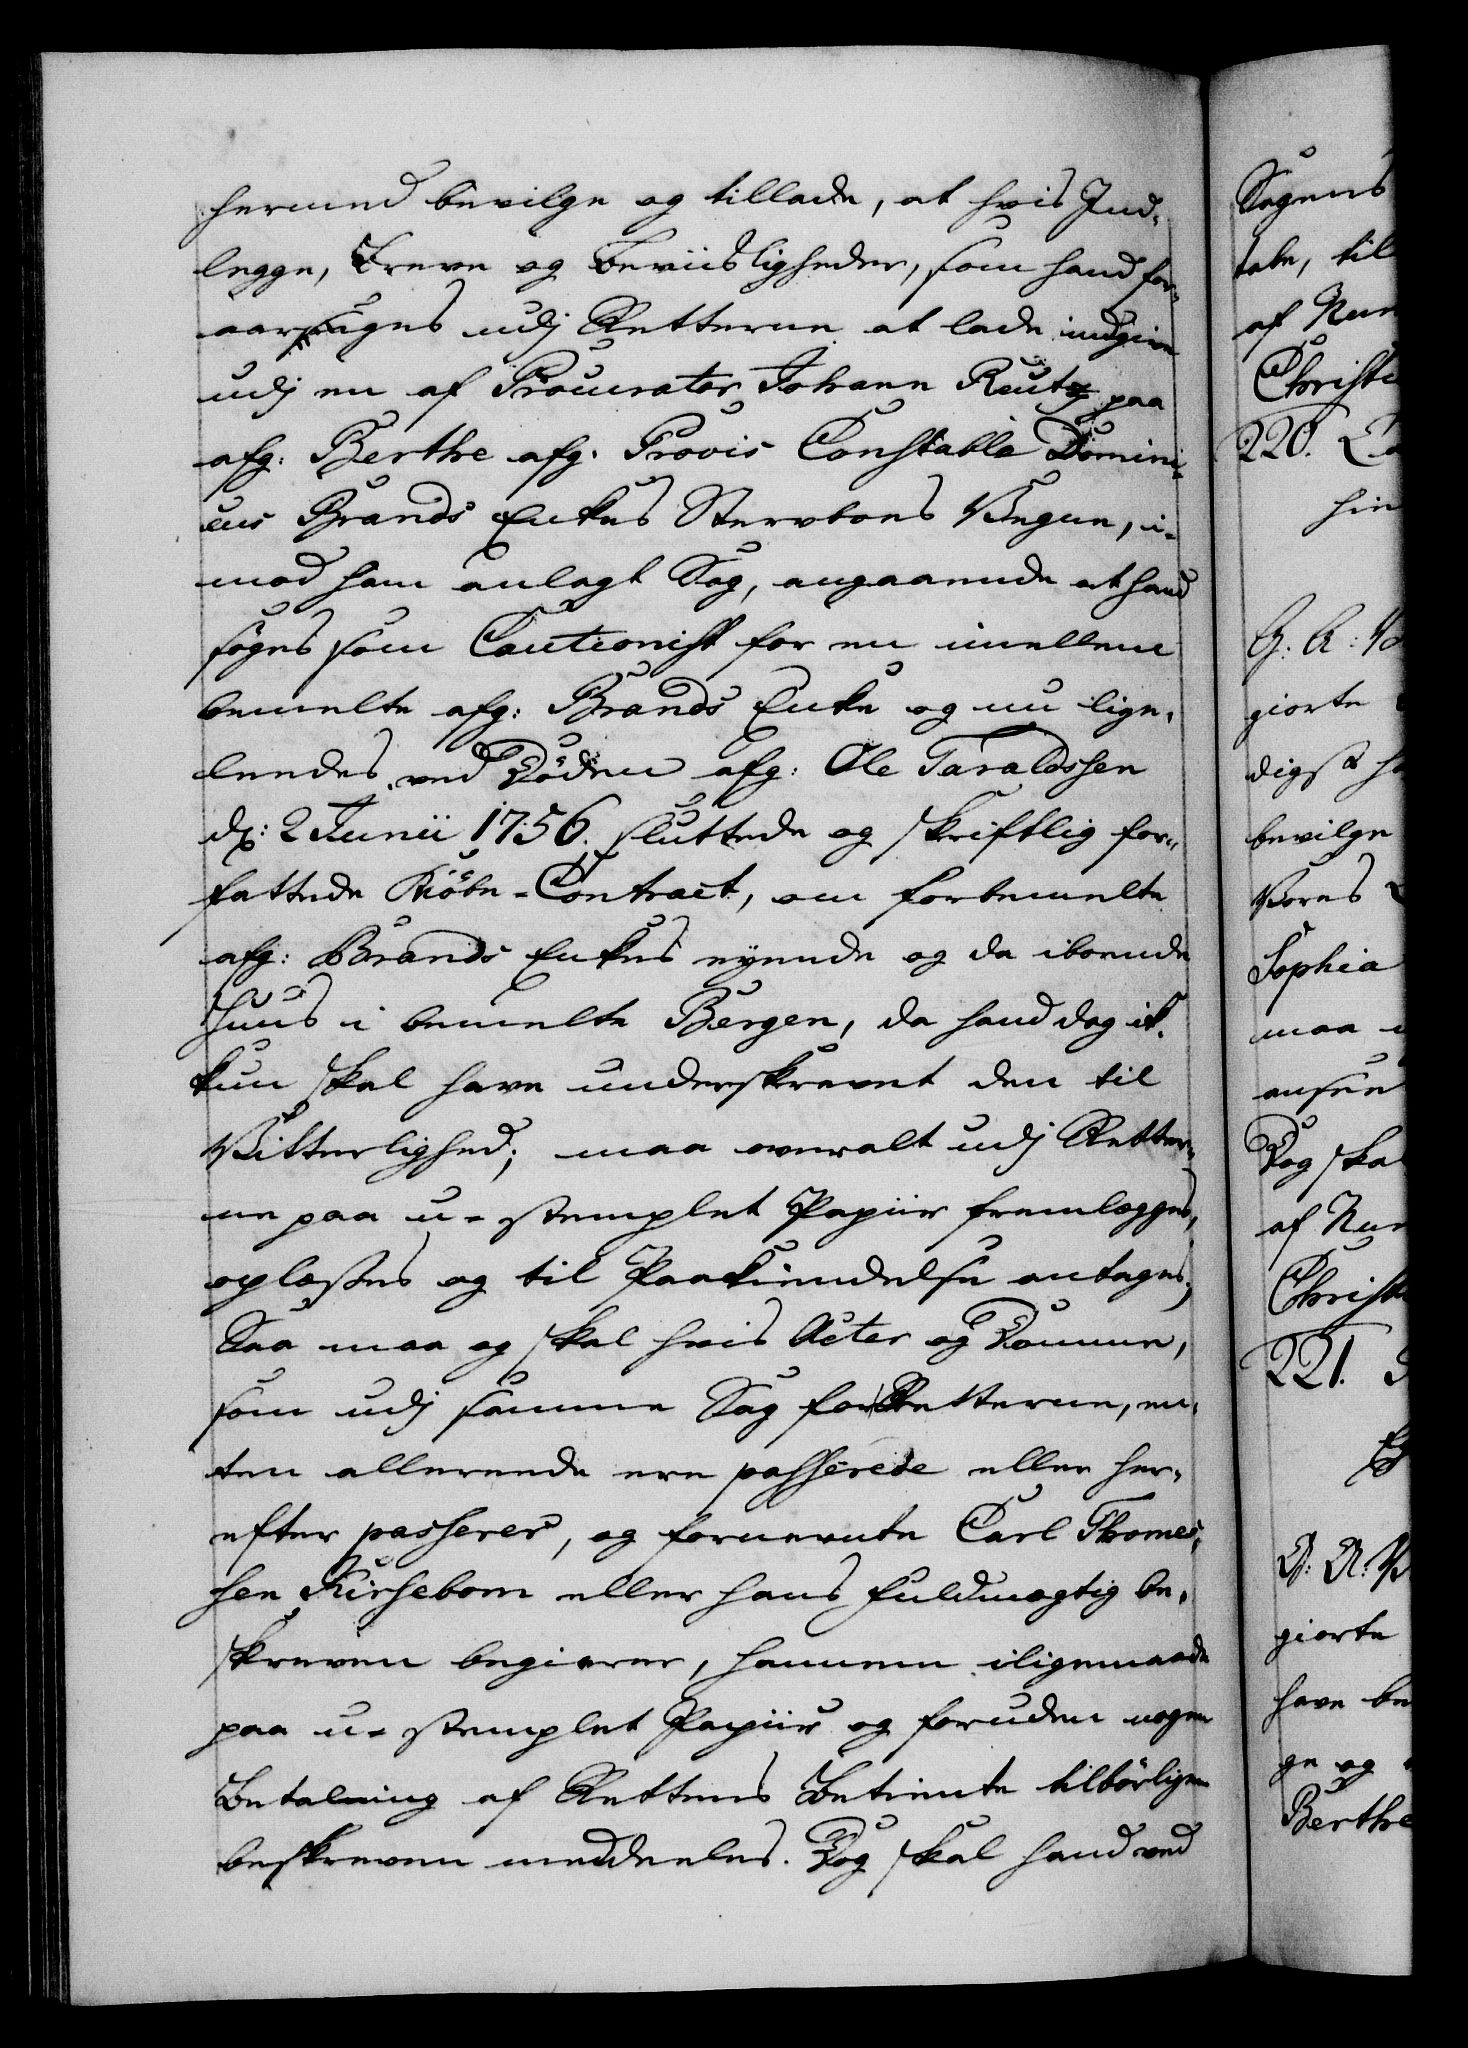 hermed bevilge og tillade, at hvis Ind-
legge, Breve og Beviisligheder, som hand for-
aarsages udj Retterne at lade indgive
udj en af Procurator Johann Reutz paa
afg: Berthe afg. Provis Constable Domini-
cus Brands Enkes Sterboes Vegne, i-
mod ham anlagt Sag, angaaende at hand
søges som Cautionist for en imellem
bemelte afg: Brands Enke og nu lige-
leedes ved Døden afg: Ole Taraldssen
dj: 2 Junii 1756. sluttede og skriftlig for-
fattede Kiøbe-Contract, om forbemelte
afg: Brands Enkes eyende og da iboende
Huus i bemelte Bergen, da hand dog ik-
kun skal have underskrevet den til
Vitterlighed; maa overalt udj Retter-
ne paa u-stemplet Papiir fremlægges,
oplæses og til Paakiendelse antages;
Saa maa og skal hvis Acter og Domme,
som udj samme Sag for Retterne, en-
ten allereede ere passerede eller her-
efter passerer, og fornevnte Carl Thomes-
sen Kirsebom eller hans fuldmægtig be-
skreven begierer, hannem iligemaade
paa u-stemplet Papiir og foruden nogen
Betalning af Rettens Betiente tilbørligen
beskreven meddeeles. Dog skal hand ved
Sagens
tabe, til
af Num
Christi
220.
hin
giorte
digst
bevilge
Vores
Sophia
maa
ansee
Dog skal
af Num
Christi
221.
giorte
have be
ge og
Berthe